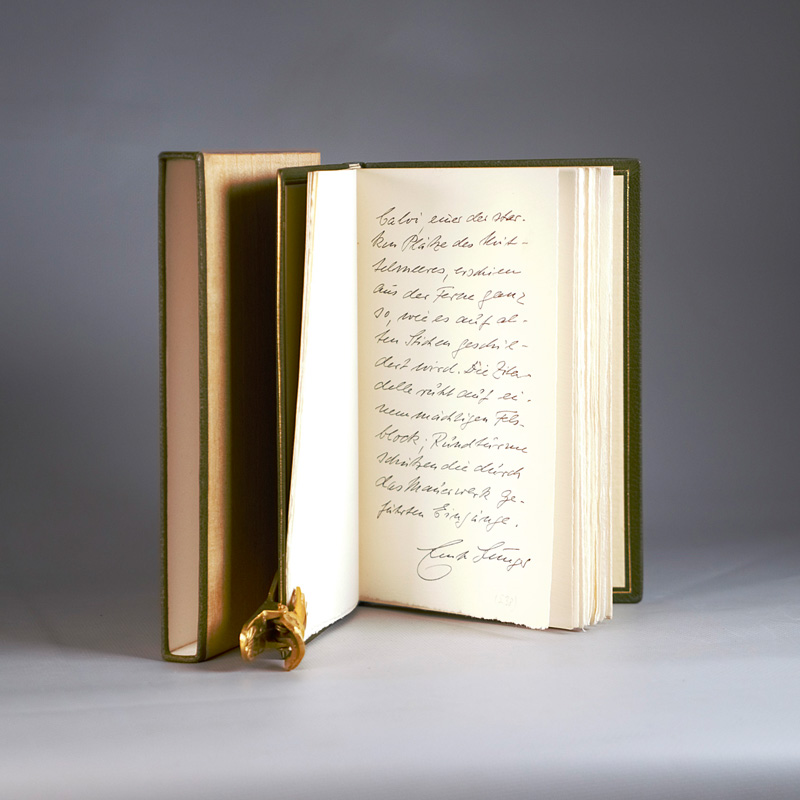 Calvi, einer der star-
ken Plätze des Mit-
telmeeres, erschien
aus der Ferne ganz
so, wie es auf al-
ten Stichen geschil-
dert wird. Die Zita-
delle ruht auf ei-
nem mächtigen Fels-
block; Rundtürme
schützen die durch
das Mauerwerk ge-
führten Eingänge.
Ernst Jünger